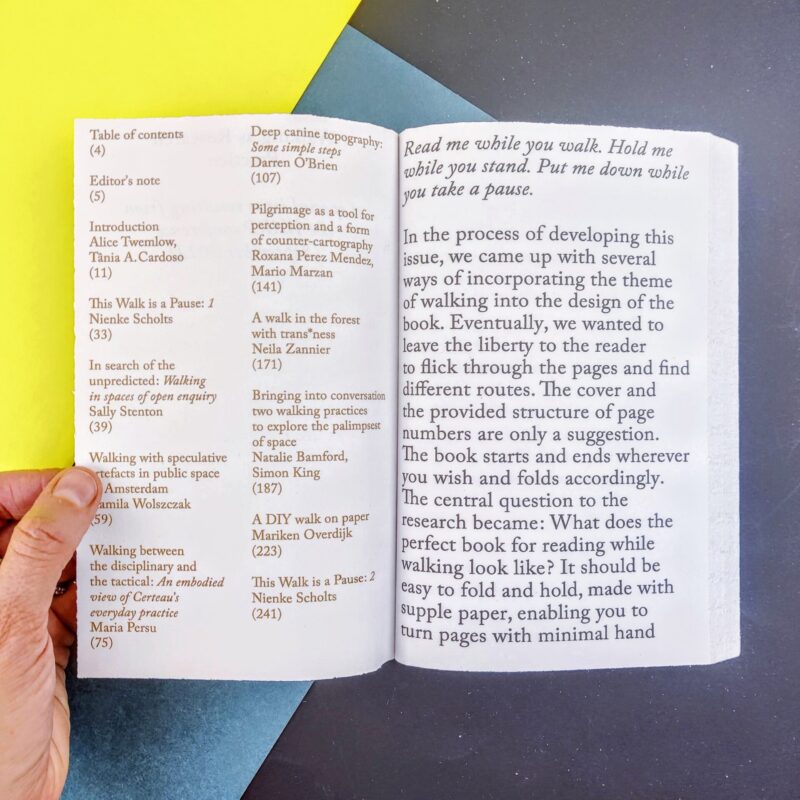 Table of contents
(4)
Editor's note
(5)
Introduction
Alice Twemlow,
Tânia A. Cardoso
(11)
This Walk is a Pause: 1
Nienke Scholts
(33)
In search of the
unpredicted: Walking
in spaces of open enquiry
Sally Stenton
(39)
Walking with speculative
artefacts in public space
Amsterdam
Wolszczak
(59)
Walking between
the disciplinary and
the tactical: An embodied
view of Certeau's
everyday practice
Maria Persu
(75)
Deep canine topography:
Some simple steps
Darren O'Brien
(107)
Pilgrimage as a tool for
perception and a form
of counter-cartography
Roxana Perez Mendez,
Mario Marzan
(141)
A walk in the forest
with trans*ness
Neila Zannier
(171)
Bringing into conversation
two walking practices
to explore the palimpsest
of space
Natalie Bamford,
Simon King
(187)
A DIY walk on paper
Mariken Overdijk
(223)
This Walk is a Pause: 2
Nienke Scholts
(241)
Read me while you walk. Hold me
while you stand. Put me down while
you take a pause.
In the process of developing this
issue, we came up with several
ways of incorporating the theme
of walking into the design of the
book. Eventually, we wanted to
leave the liberty to the reader
to flick through the pages and find
different routes. The cover and
the provided structure of page
numbers are only a suggestion.
The book starts and ends wherever
you wish and folds accordingly.
The central question to the
research became: What does the
perfect book for reading while
walking look like? It should be
easy to fold and hold, made with
supple paper, enabling you to
turn pages with minimal hand